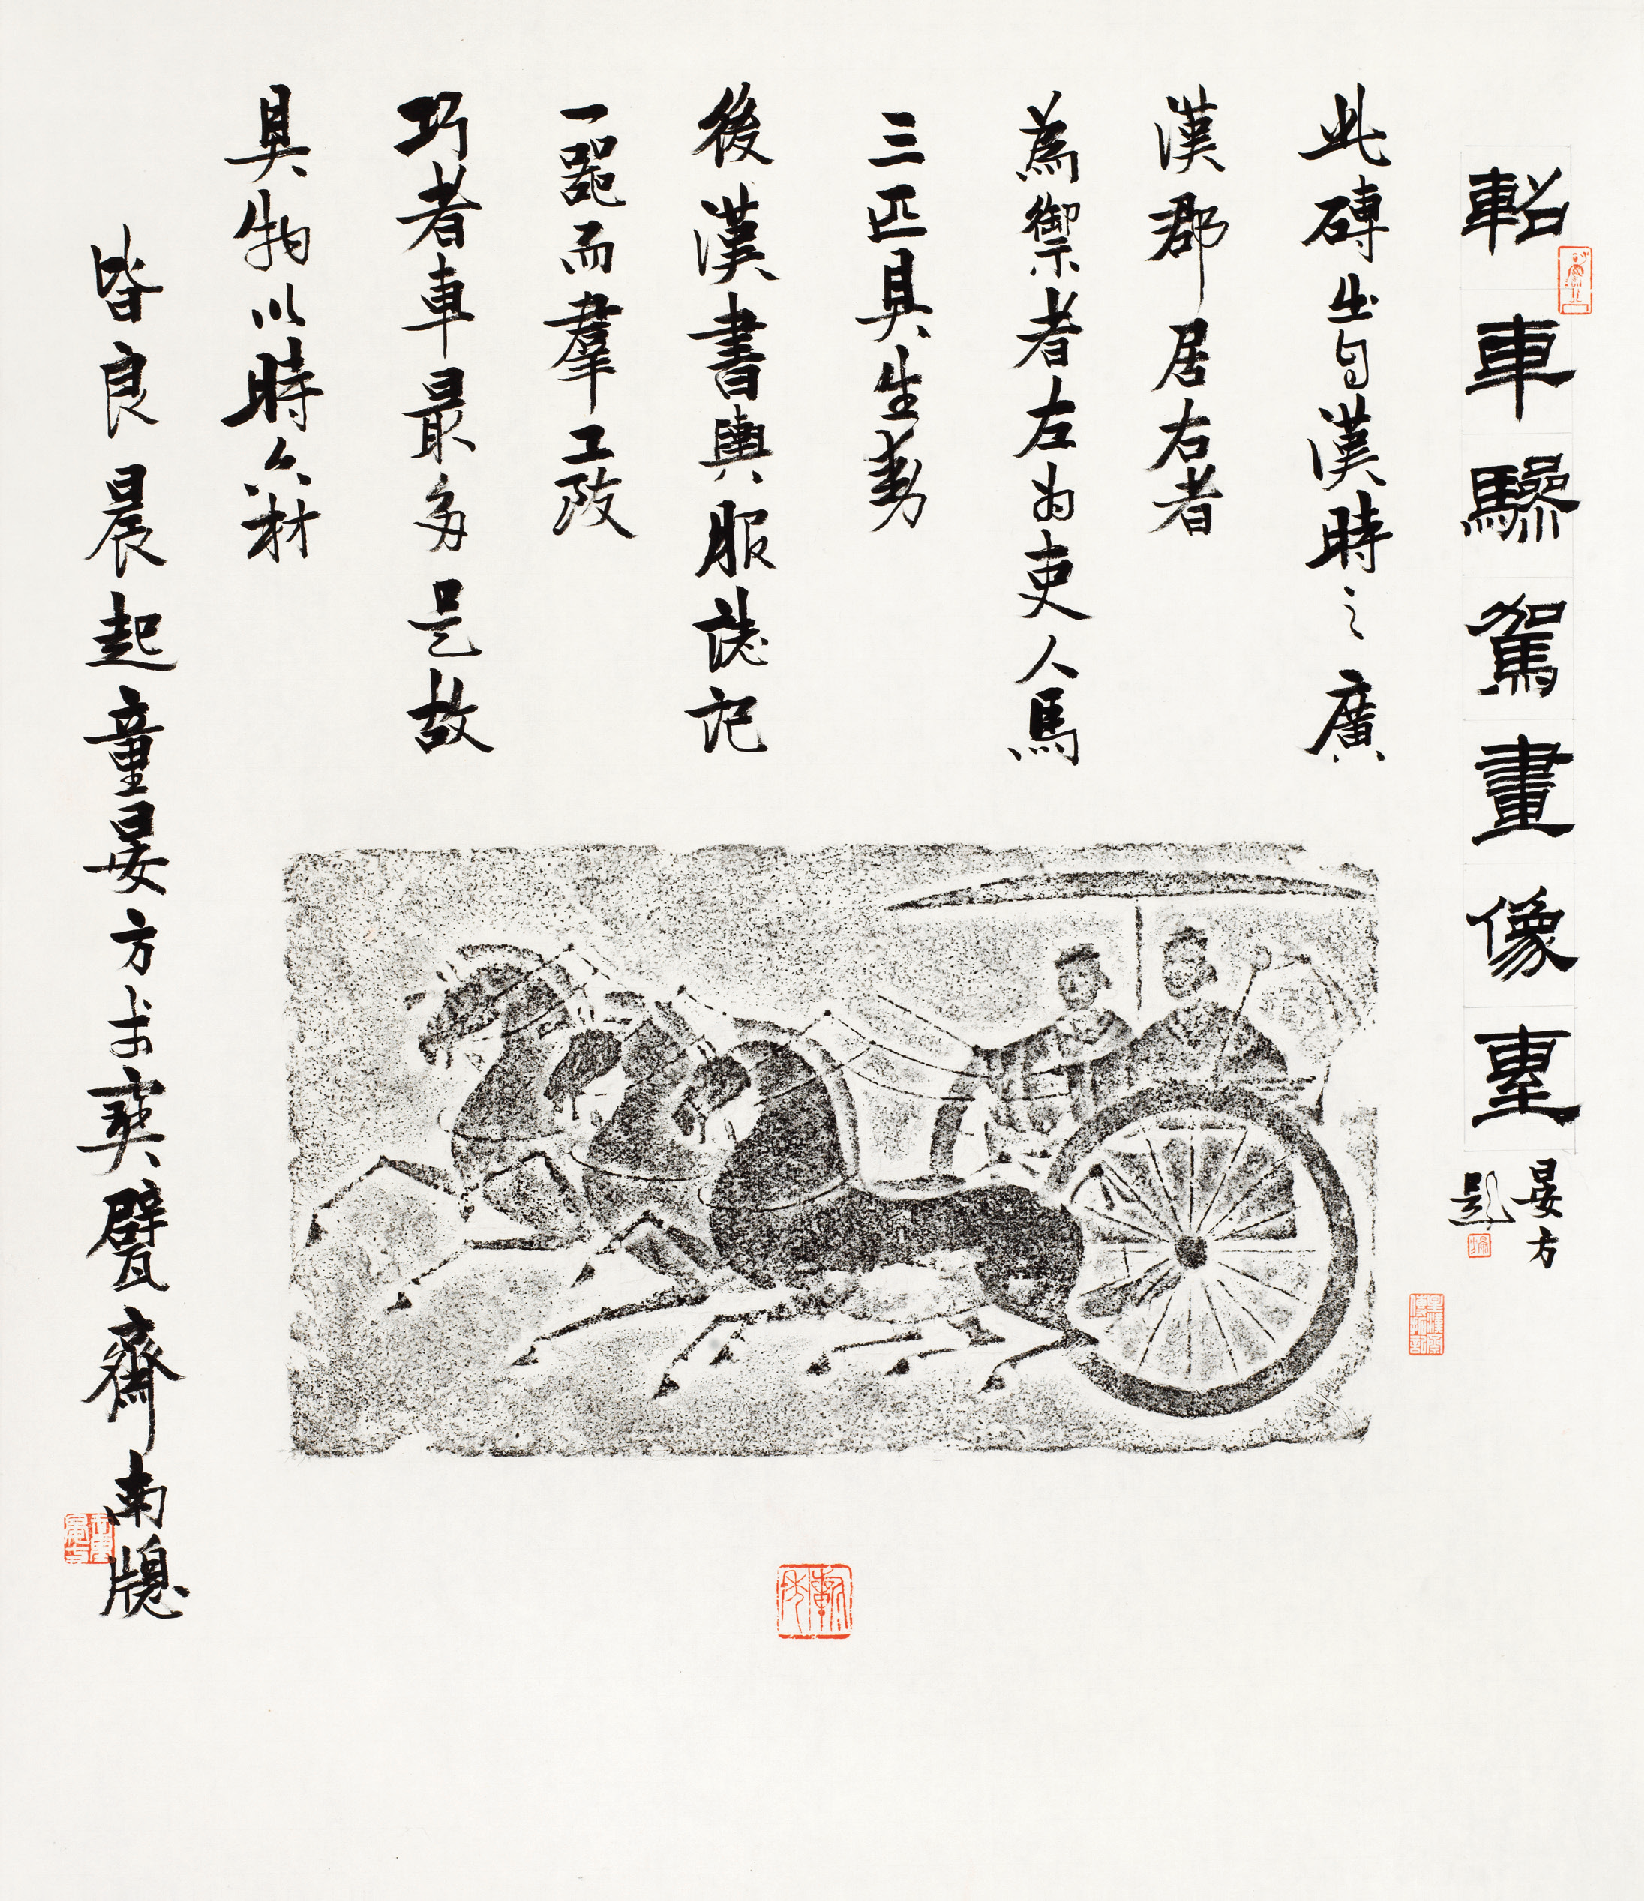 軺車驂駕畫像
晏方
題
此磚出自漢時之廣
漢郡居右者
為禦者左为吏人馬
三匹具生動
後漢書輿服誌記
一器而羣工致
巧者車最多是故
具物以時六材
皆良晨起童晏方於甓齋南牕